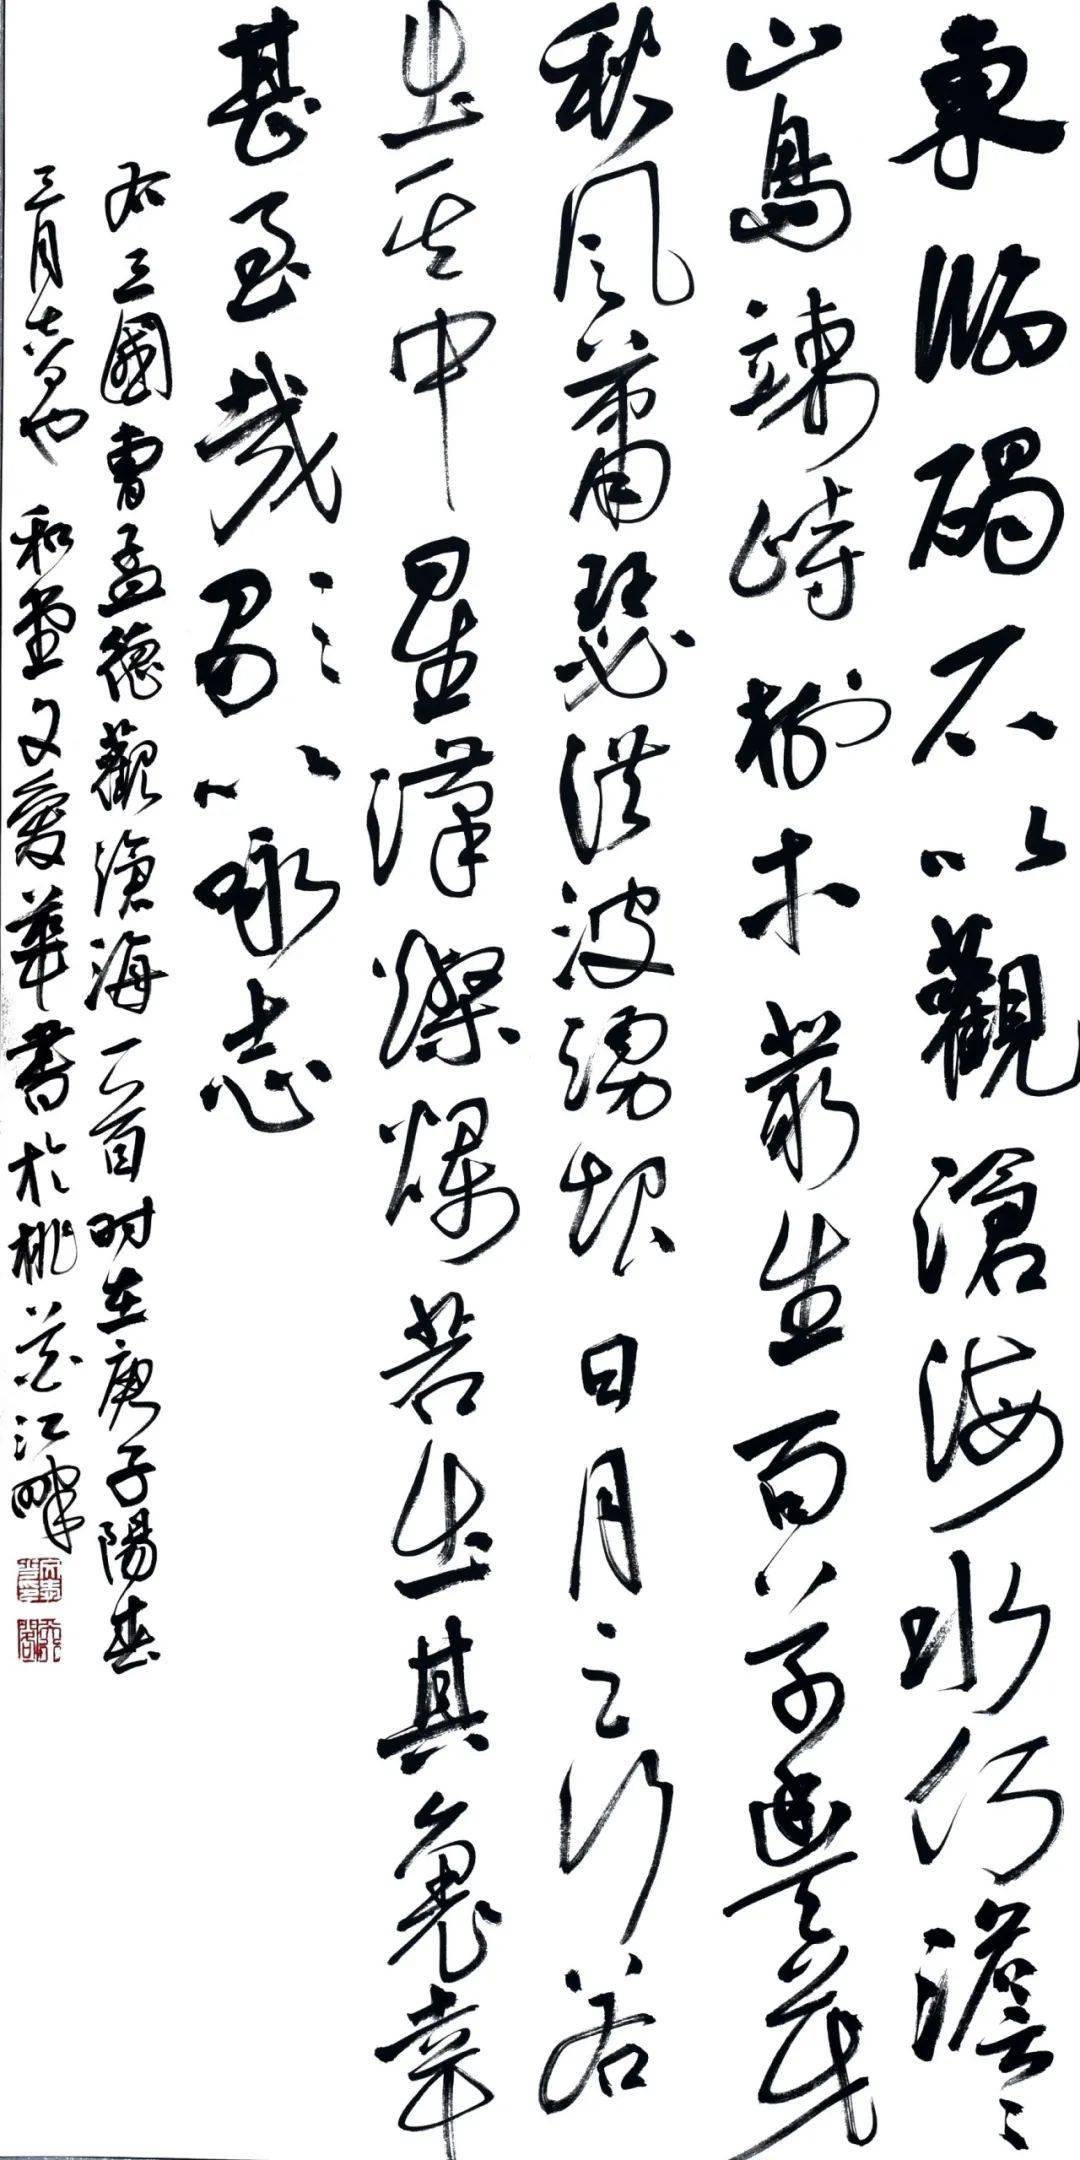 東臨碣石以觀滄海水何澹〻
山島竦峙樹木叢生百草豐茂
秋風蕭瑟洪波湧起日月之行若
出其中星漢燦爛若出其裏幸
甚至哉歌以咏志
右三國曹孟德觀滄海一首时在庚子陽春
三月也和堂文愛華書於桃花江畔